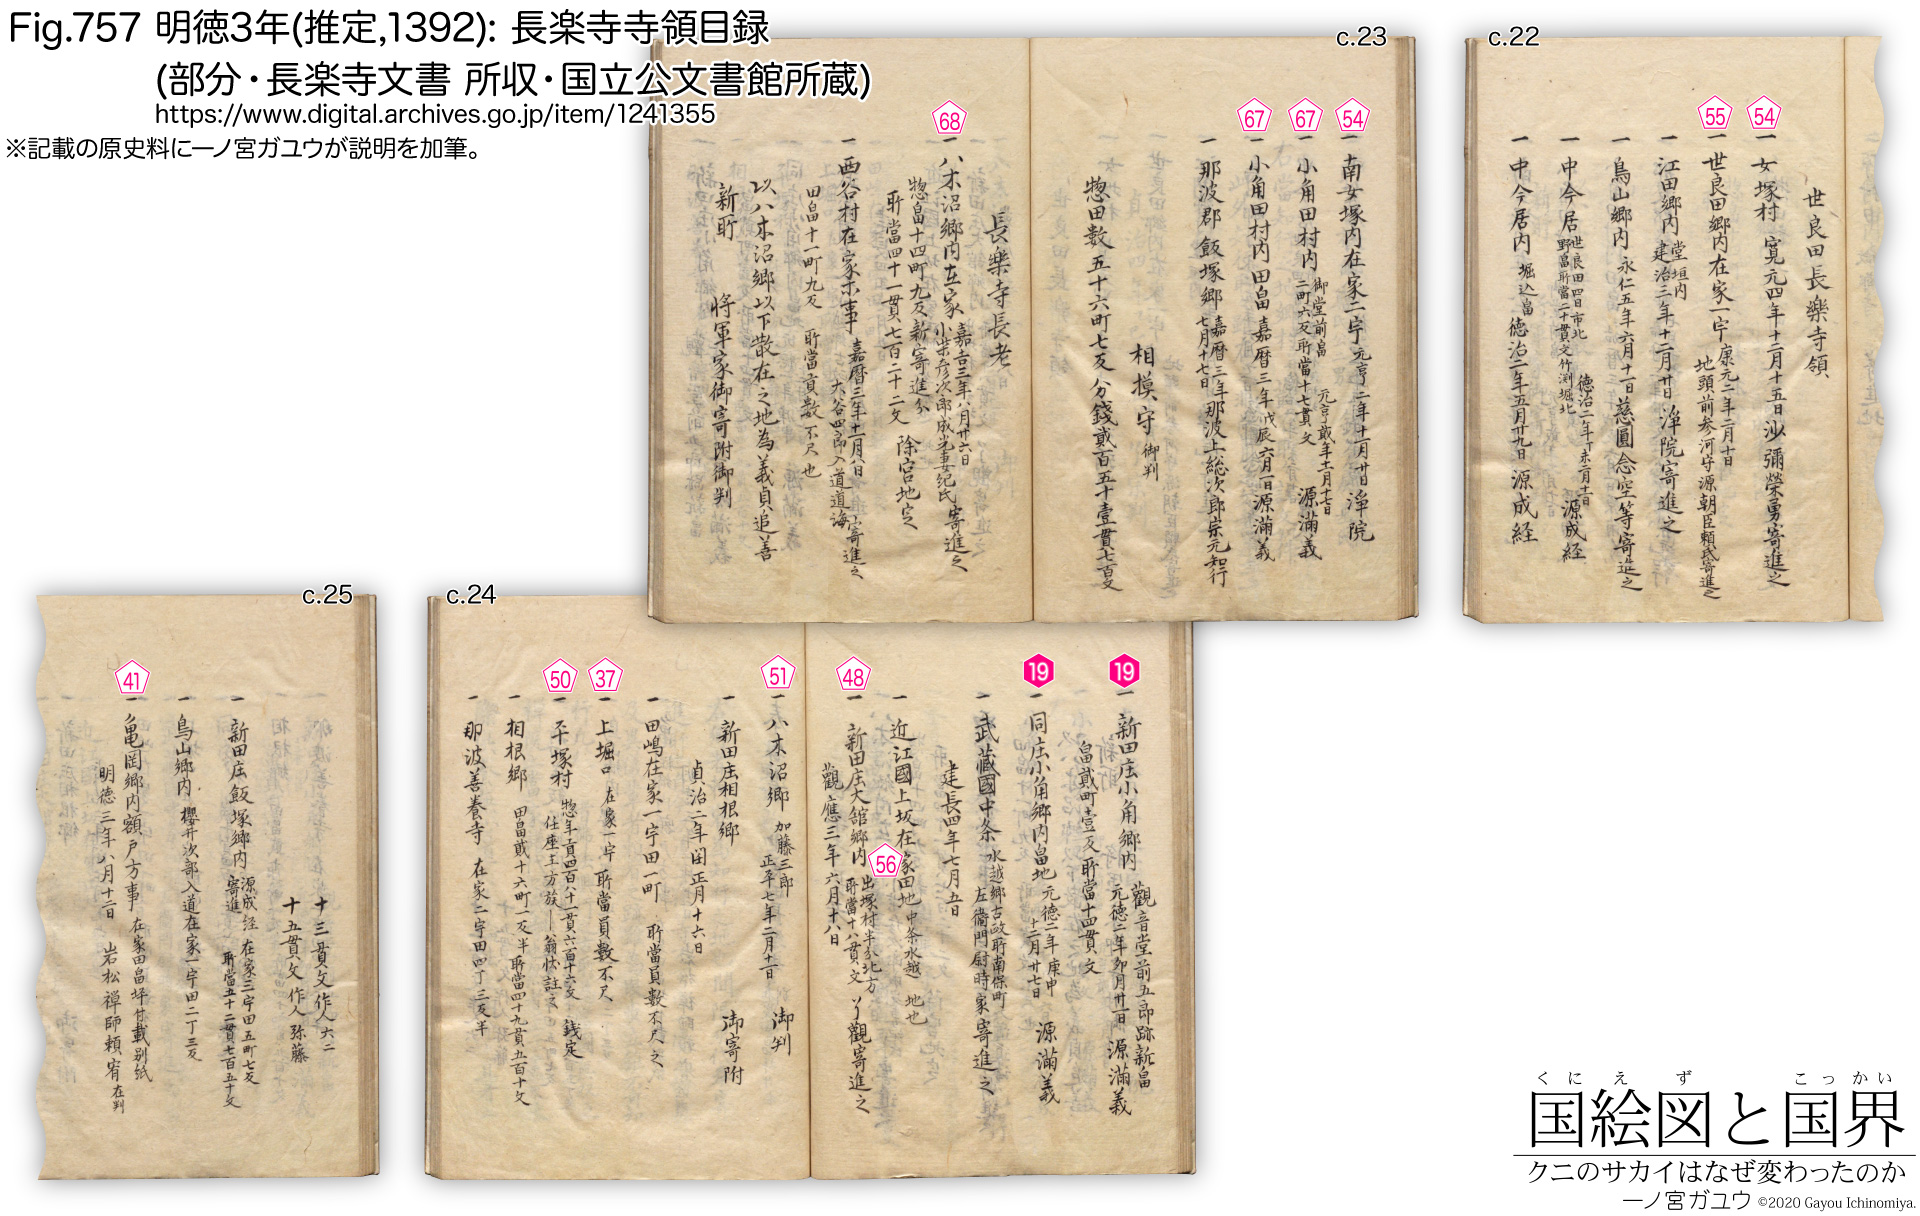 Fig.757 明徳3年(推定,1392): 長楽寺寺領目録
(部分・長楽寺文書 所収・国立公文書館所蔵)
https://www.digital.archives.go.jp/item/1241355
※記載の原史料に一ノ宮ガユウが説明を加筆。
c.22
54
55
世良田長樂寺領
一 女塚村 寛元四年十二月十五日沙彌榮勇寄進之
一 世良田郷内在家一宇 康元二年二月十日
地頭前参河守源朝臣頼氏寄進之
一 江田郷内 堂垣内
建治三年十二月廿日 浄院寄進之
一 鳥山郷内 永仁五年六月十一日慈圓念空等寄進之
一 中今居 世良田四日市北
野畠所當二十貫文竹渕堀北
徳治二年丁未二月十一日 源成経
一 中今居内 堀込畠 徳治二年五月廿九日 源成経
c.23
54
67
67
68
一 南女塚内在家一宇 元亨二年十二月廿日 浄院
一 小角田村内 御堂前畠
二町六反所當十七貫文
源満義
一 小角田村内田畠 嘉暦三年戊辰六月一日 源満義
一 那波郡飯塚郷 嘉暦三年
七月十七日 那波上総次郎宗元知行
相摸守 御判
惣田数五十六町七反 分錢貳百五十壹貫七百文
長樂寺長老
一 八木沼郷内在家 嘉吉三年八月廿六日
寄進之
惣畠十四町九反新寄進分
所當四十一貫七百二十二文 除宮地定
一 西谷村在家等事 嘉暦三年十一月八日
大谷四郎入道道海寄進之
田畠十一町九反 所當貢数不尺也
以八木沼郷以下散在之地為義貞追善
新所 将軍家御寄附御判
c.24
19
19
48
56
51
37
50
一 新田庄小角郷内 觀音堂前五郎跡新畠
源満義
畠貳町壹反所當十四貫文
一 同庄小角郷内畠地 元徳二年庚申
十二月廿七日 源満義
一 武藏國中条 水越郷古政所南保町
左衞門尉時家寄進之
建長四年七月五日
一 近江國上坂在家田地 中条水越 地也
一 新田庄大舘郷内 出塚村半分北方
所當十八貫文 了觀寄進之
觀應三年六月十八日
一 八木沼郷 加藤三郎
正平七年二月十一日 御判
一 新田庄相根郷 御寄附
貞治二年閏正月十六日
一 田嶋在家一宇田一町 所當員數不尺之
一 上堀口 在家一宇 所當員數不尺
一 平塚村 錢定
一 相根郷 田畠貳十六町一反半 所當四十九貫五百十文
一 那波善養寺 在家二宇田四丁三反半
c.25
41
十三貫文作人 六二
十五貫文作人 弥藤
一 新田庄飯塚郷内 源成経
寄進 在家三宇田五町七反
所當五十二貫七百五十文
一 鳥山郷内 櫻井次郎入道在家一宇田二丁三反
一 亀罡郷内額戸方事 在家田畠坪付載別紙
明徳三年八月十三日 岩松禅師頼宥 在判
くにえず こっかい
国絵図と国界
クニのサカイはなぜ変わったのか
一ノ宮ガユウ ©2020 Gayou Ichinomiya.